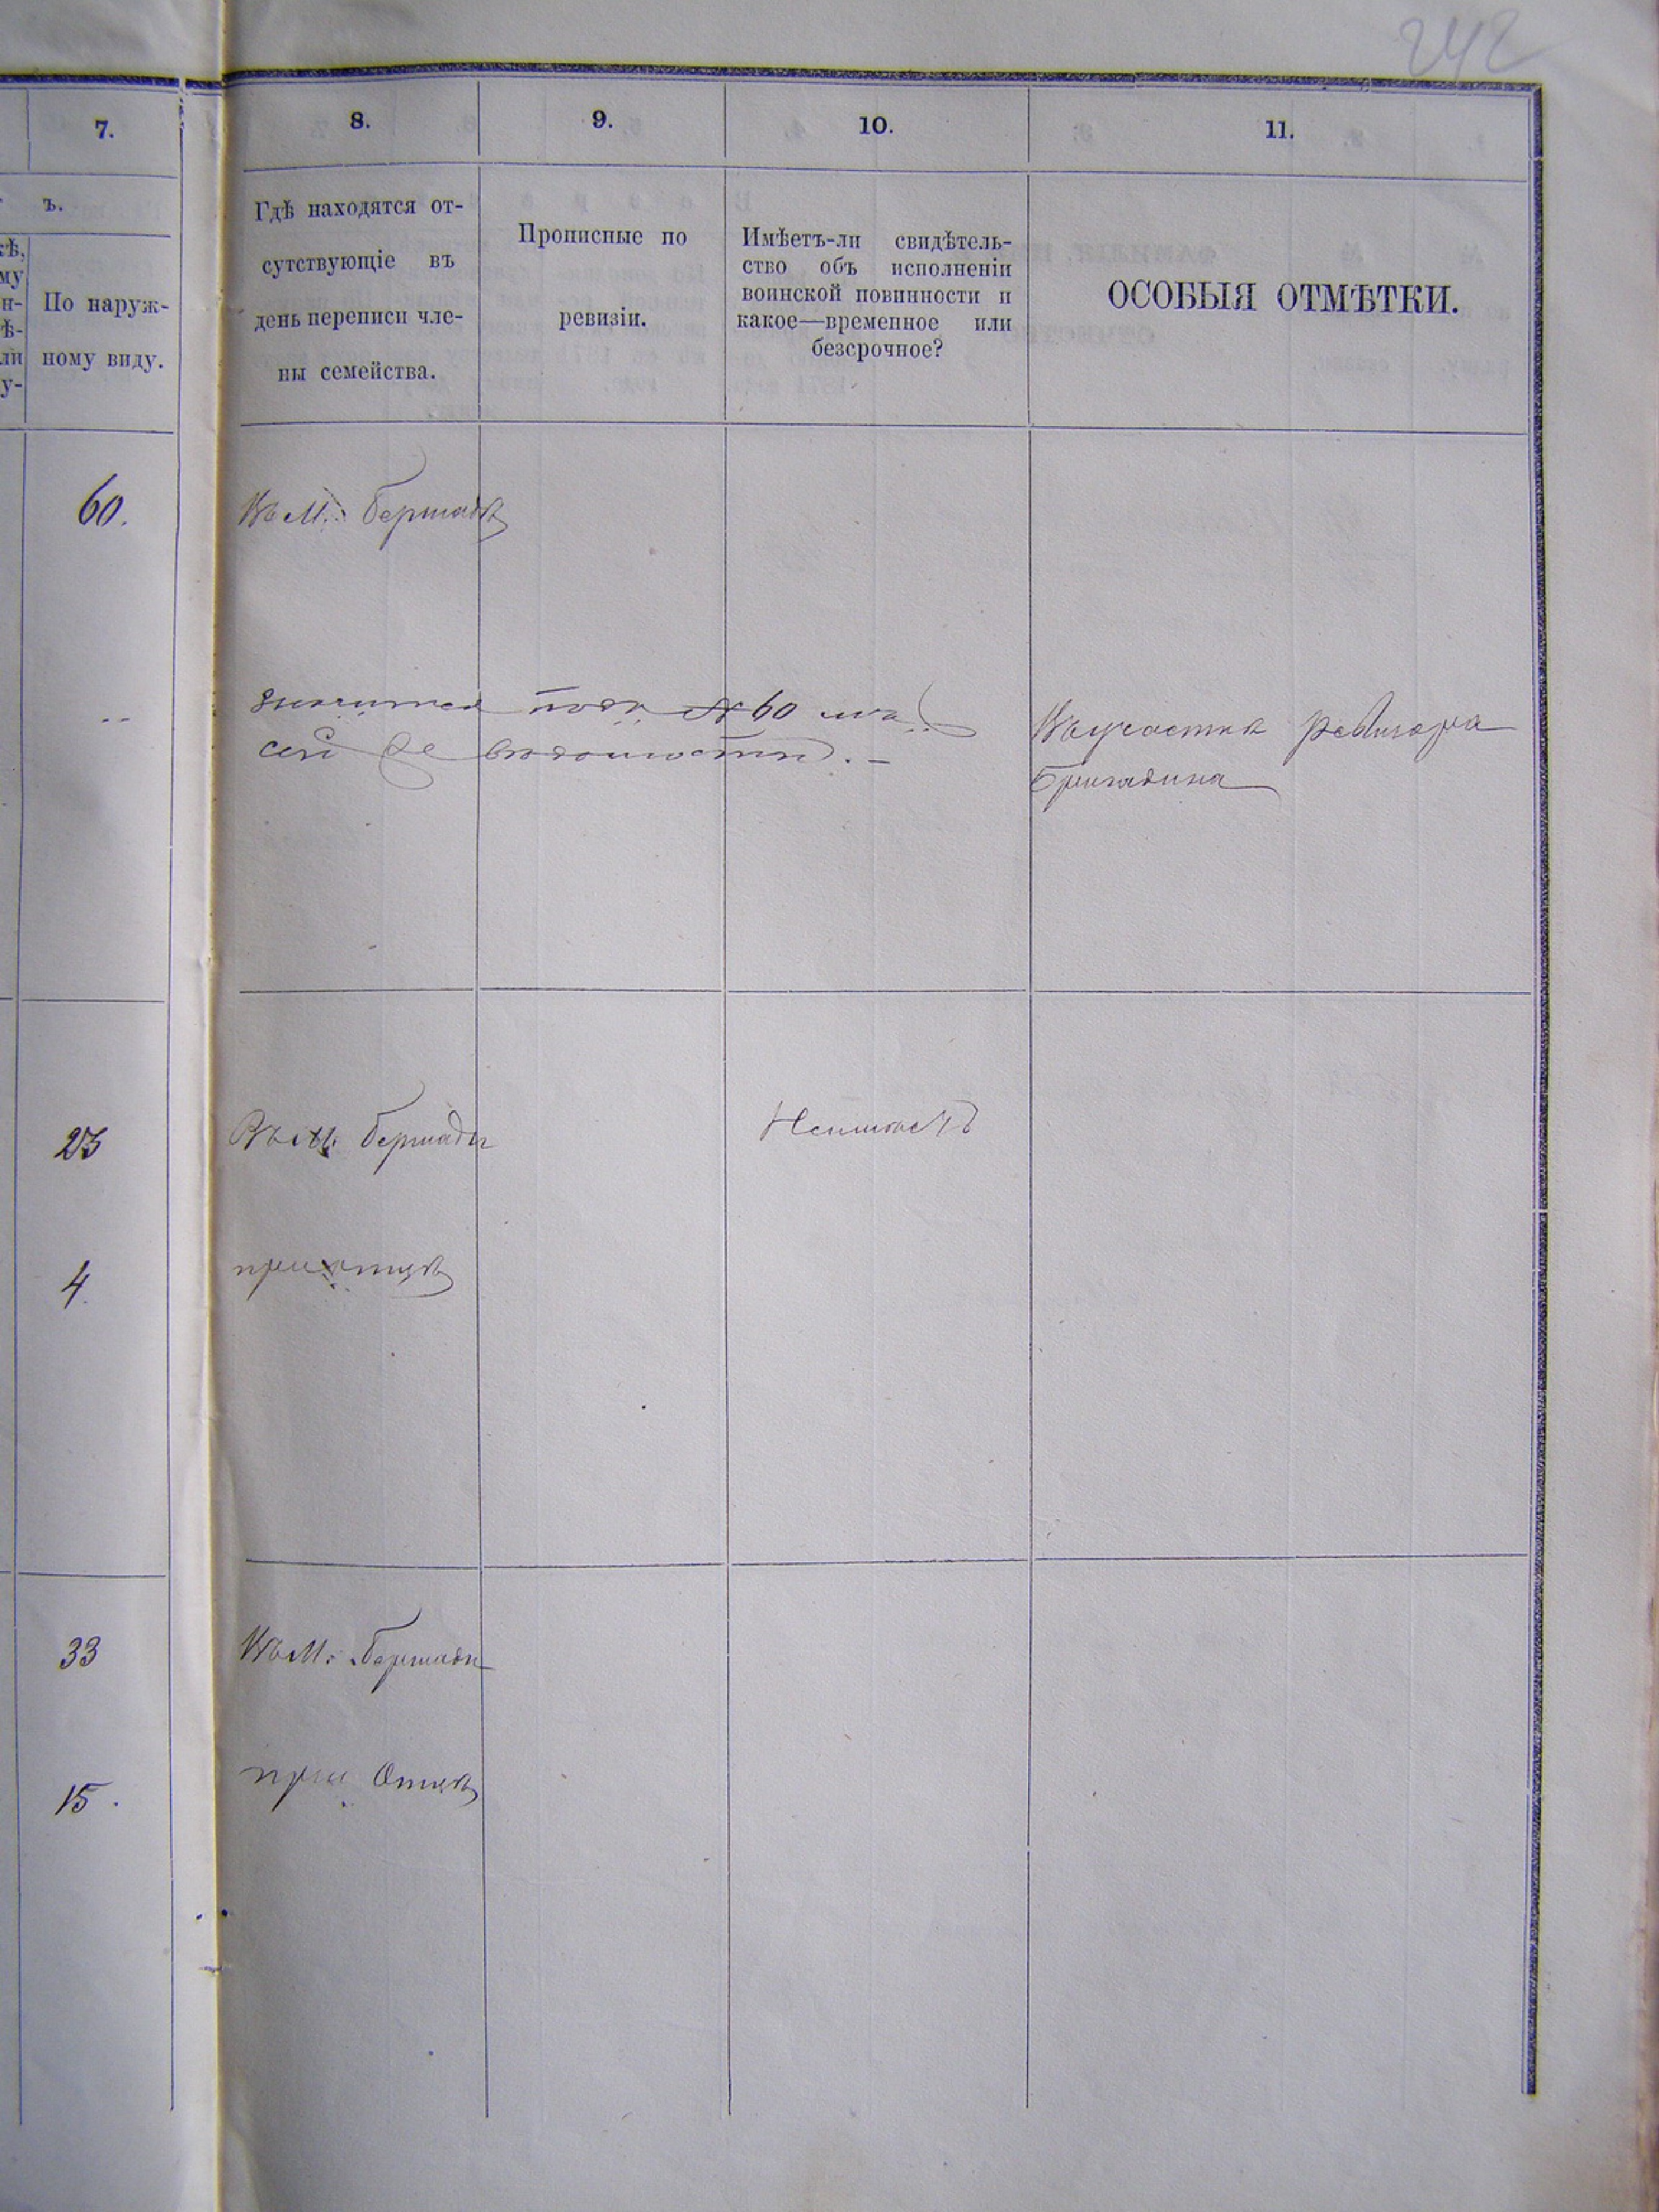 242
7.
8.
9.
10.
11.
ъ.
По наруж-
ному виду.
Гдѣ находятся от-
сутствующіе въ
день переписи чле-
ны семейства.
Прописные по
ревизіи.
Имѣетъ-ли свидѣтель-
ство объ исполненіи
воинской повинности и
какое—временное или
безсрочное?
ОСОБЫЯ ОТМѢТКИ.
60.
Въ М. Бершадѣ
значится подъ № 60
сей же вѣдомости. –
Въ участкѣ ревизора
Бригадина
23
Въ М. Бершади
Неимѣетъ
4
при отцѣ
33
Въ М. Бершади
15.
при Отцѣ